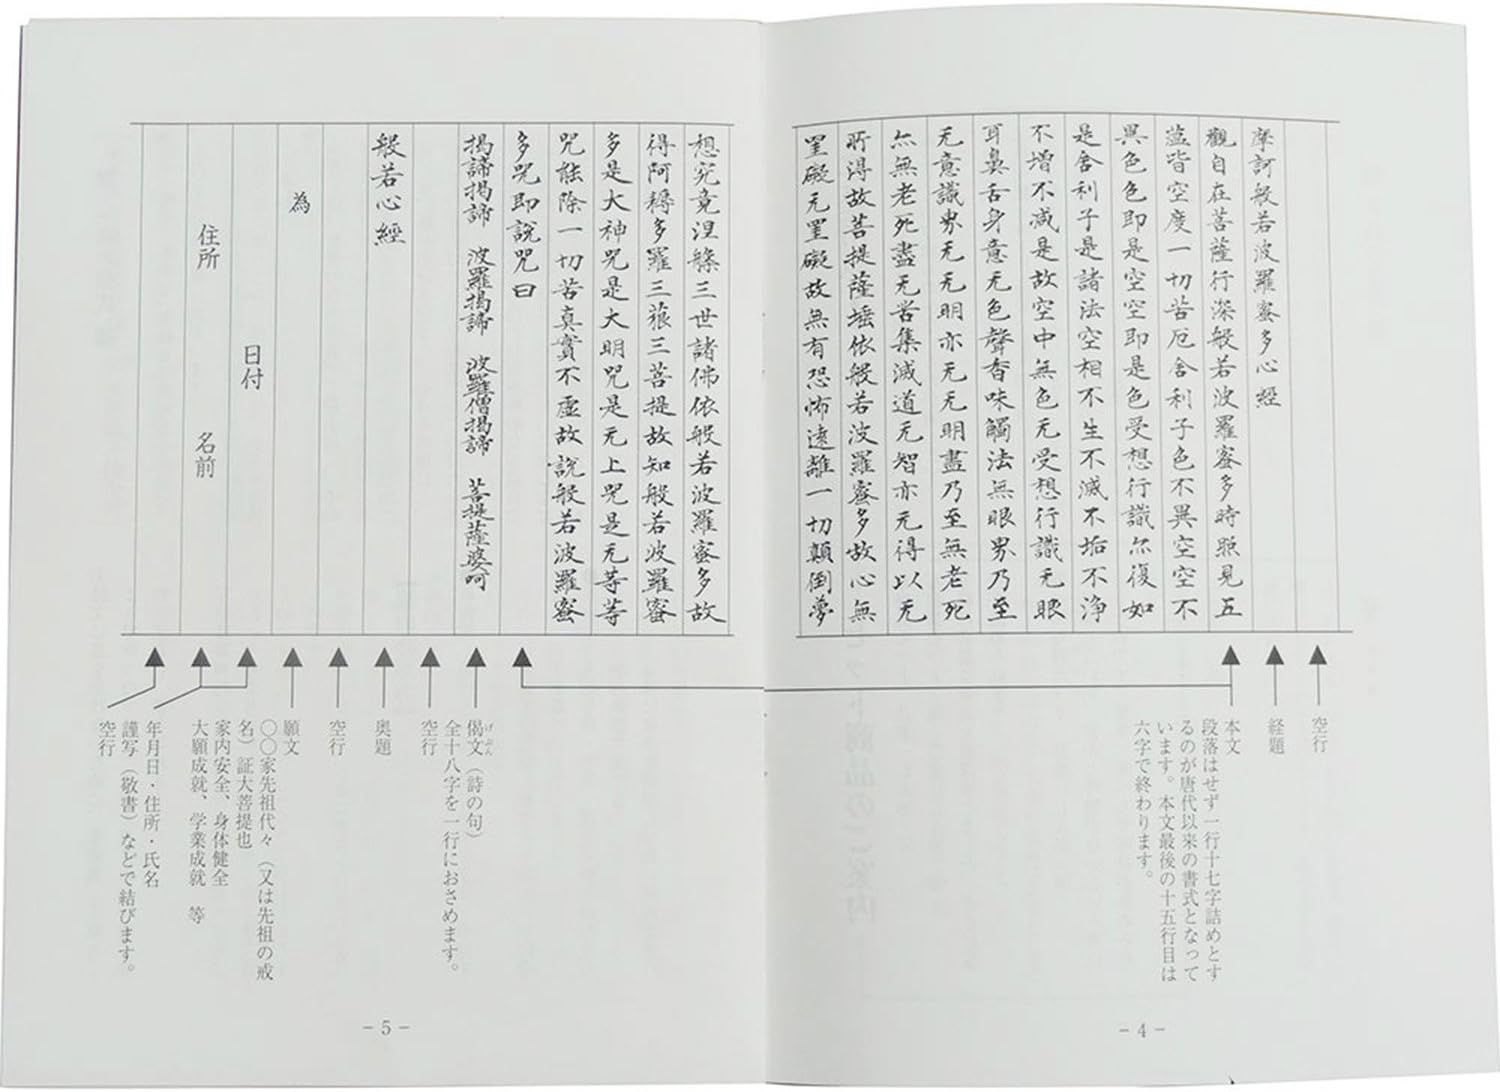 摩訶般若波羅蜜多心經
觀自在菩薩行深般若波羅蜜多時照見五
蘊皆空度一切苦厄舍利子色不異空空不
異色色即是空空即是色受想行識尓復如
是舍利子是諸法空相不生不滅不垢不浄
不增不减是故空中無色无受想行識无眼
耳鼻舌身意无色聲香味觸法無眼界乃至
无意識界无无明亦无无明盡乃至無老死
尓無老死盡无苦集滅道无智亦无得以无
所得故菩提薩埵依般若波羅蜜多故心無
罣礙无罣礙故無有恐怖遠離一切顛倒夢
想究竟涅槃三世諸佛依般若波羅蜜多故
得阿耨多羅三藐三菩提故知般若波羅蜜
多是大神咒是大明咒是无上咒是无等等
咒能除一切苦真實不虚故説般若波羅蜜
多咒即説咒曰
揭諦揭諦 波羅揭諦 波羅僧揭諦 菩提薩婆呵
般若心經
為
日付
住所 名前
空行
経題
本文
段落はせず一行十七字詰めとす
るのが唐代以来の書式となって
います。本文最後の十五行目は
六字で終わります。
偈文（詩の句）
げぶん
全十八字を一行におさめます。
空行
奥題
空行
願文
〇〇家先祖代々（又は先祖の戒
名）証大菩提也
家内安全、身体健全
大願成就、学業成就 等
年月日・住所・氏名
謹写（敬書）などで結びます。
空行
- 4 -
- 5 -